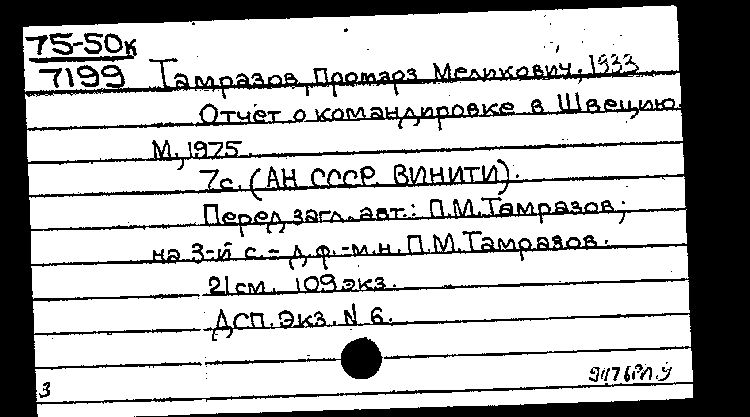 75-50к
7199 Тамразов, Промарз Меликович, 1933
Отчет о командировке в Швецию.
М., 1975.
7с. (АН СССР. ВИНИТИ).
Перед загл. авт.: П.М. Тамразов;
на 3-й с. - д.ф.-м.н. П.М. Тамразов.
21см. 109 экз.
ДСП. Экз. N 6.
3